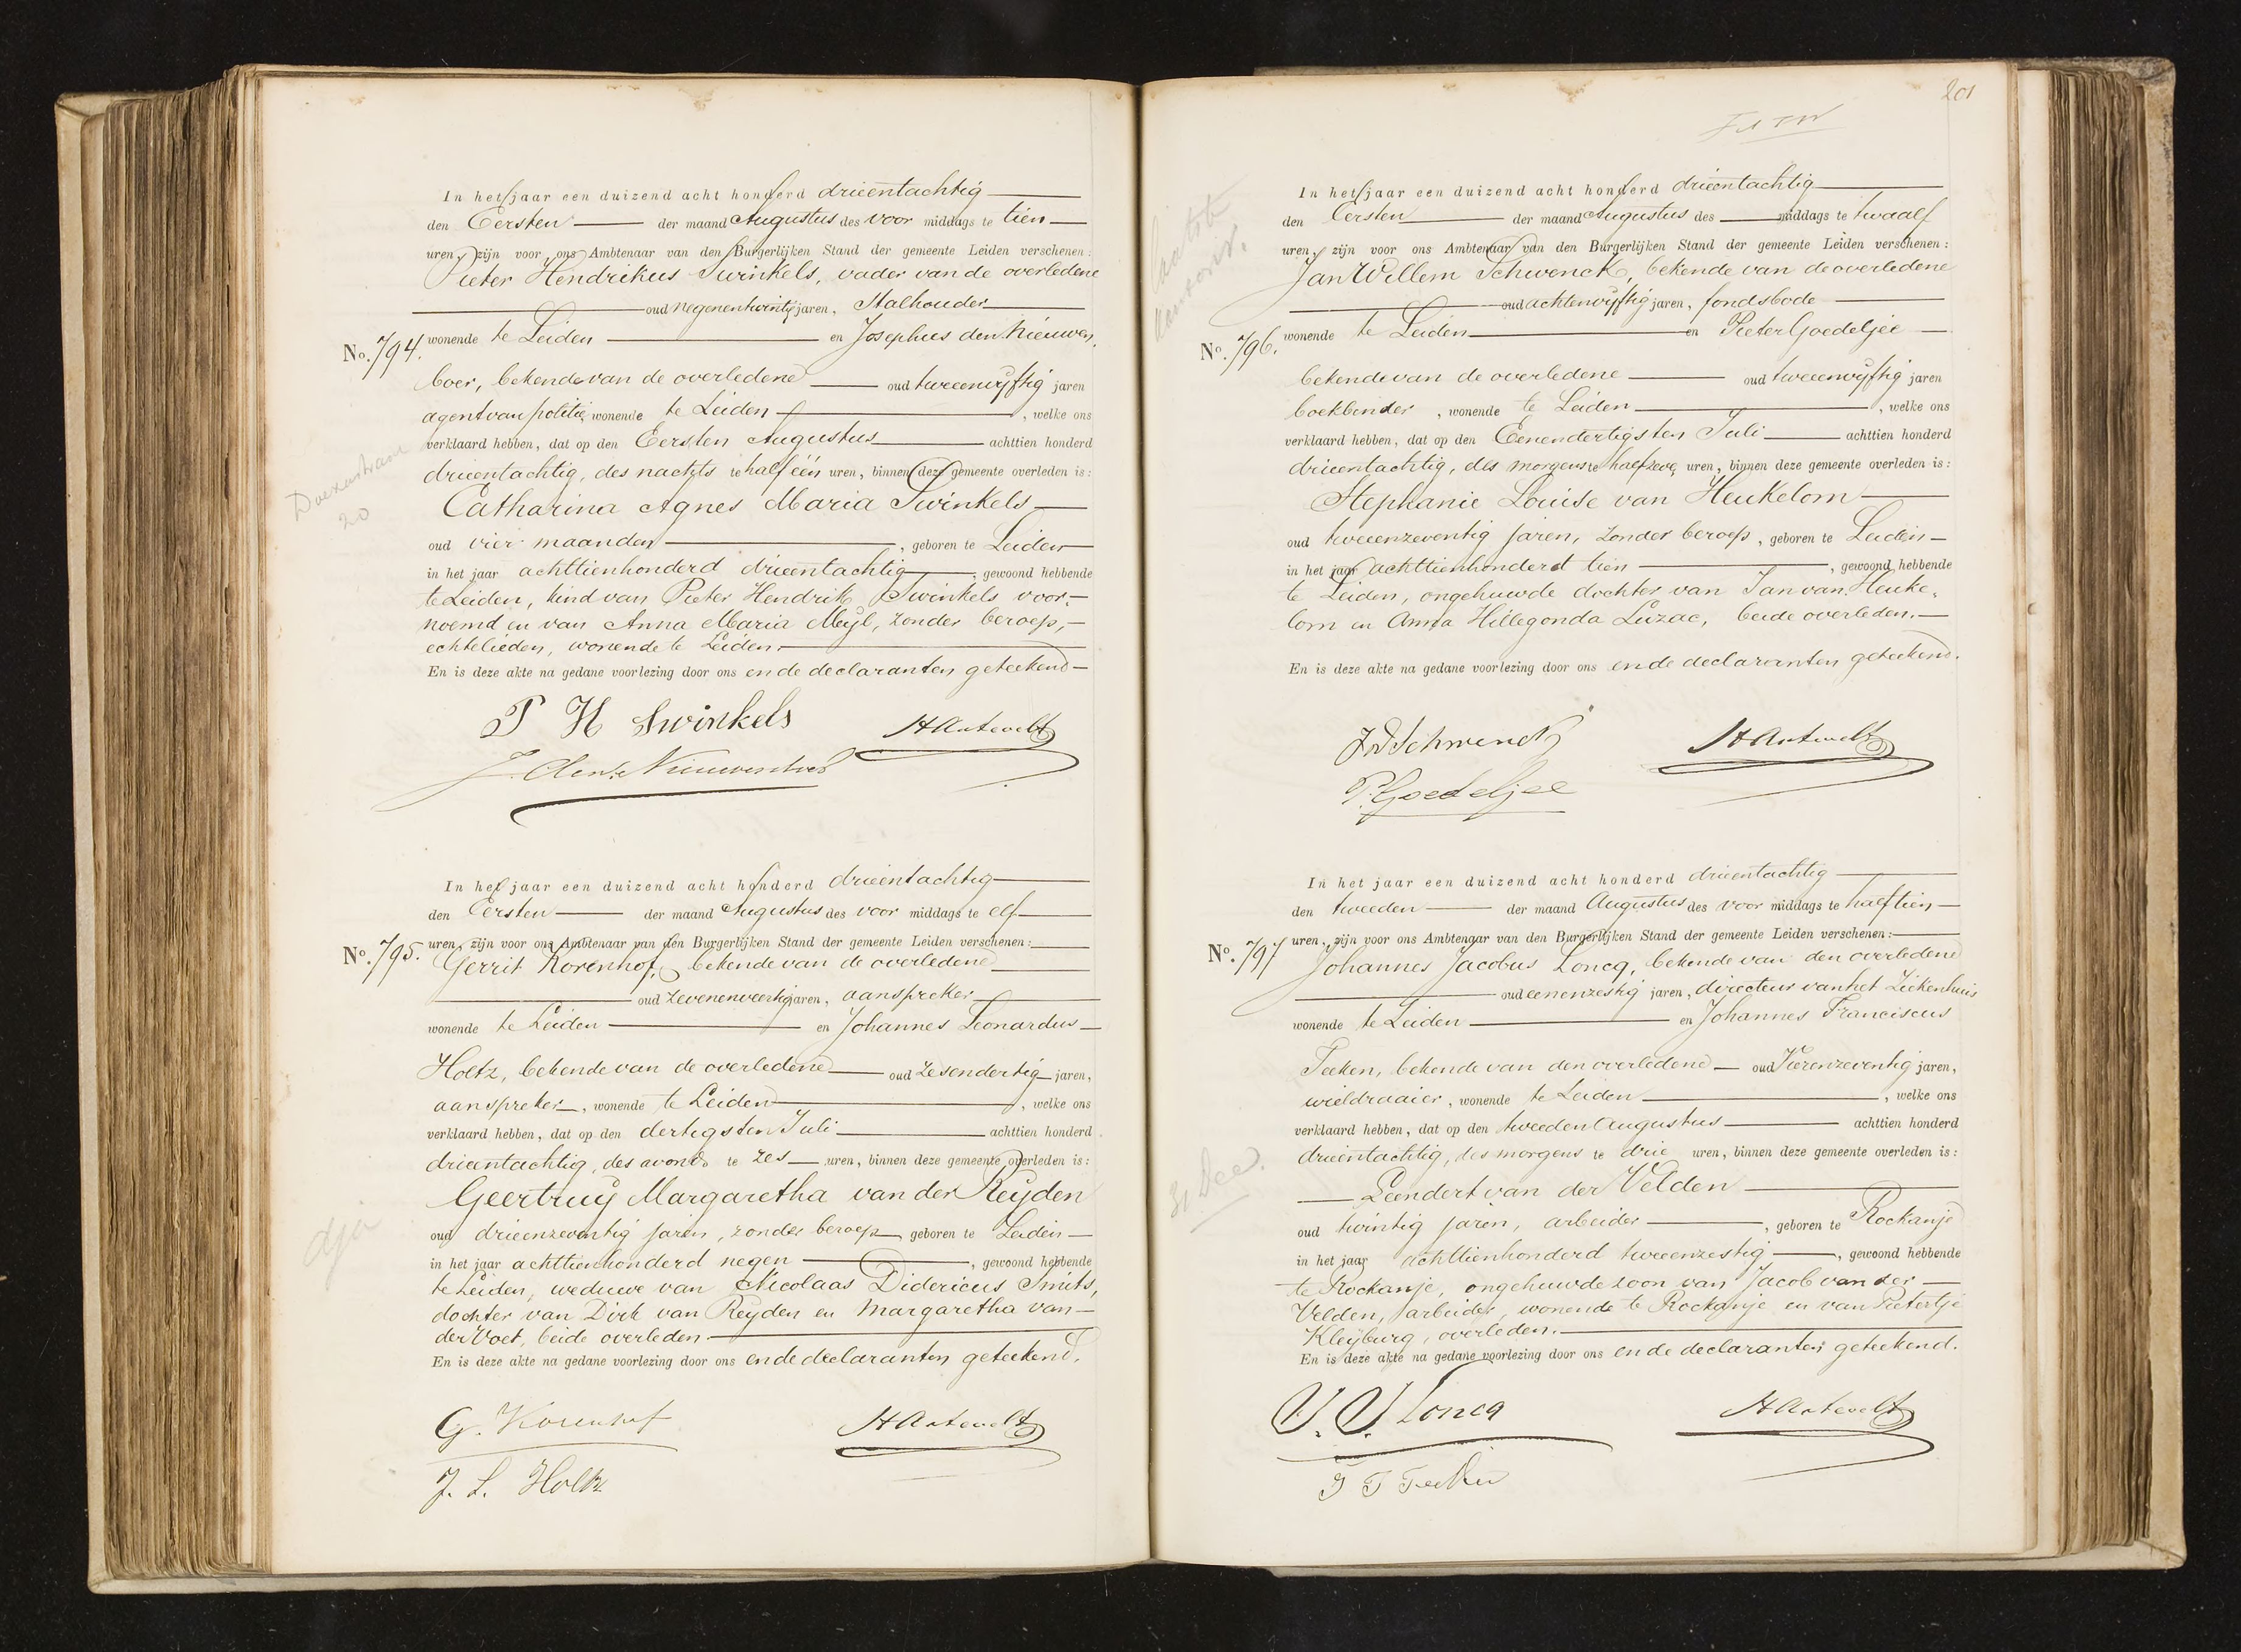 In het jaar een duizend acht honderd drieëntachtig
den Eersten der maand Augustus des voor middags te tien
uren, zijn voor ons Ambtenaar van den Burgerlijken Stand der gemeente Leiden verschenen:
Pieter Hendrikus Swinkels, vader van de overledene
oud negenentwintig jaren, Stalhouder
No. 794. wonende te Leiden en Josephus den Nieuwen
boer, bekende van de overledene oud tweeenvijftig jaren
agent van politie, wonende te Leiden, welke ons
verklaard hebben, dat op den Eersten Augustus achttien honderd
drieentachtig, des nachts te half één uren, binnen deze gemeente overleden is:
Catharina Agnes Maria Swinkels
oud vier maanden, geboren te Leiden
in het jaar achttienhonderd drieentachtig, gewoond hebbende
te Leiden, kind van Pieter Hendrik Swinkels voor-
noemd en van Anna Maria Meyl, zonder beroep,
echtelieden, wonende te Leiden.
En is deze akte na gedane voorlezing door ons en de declaranten geteekend
Doezastraat
20
P H Swinkels HArtevelt
J. den Nieuwenboer
In het jaar een duizend acht honderd drieentachtig
den Eersten der maand Augustus des voor middags te elf
No. 795. uren, zijn voor ons Ambtenaar van den Burgerlijken Stand der gemeente Leiden verschenen:
Gerrit Korenhof, bekende van de overledene
oud zevenenveertig jaren, aanspreker
wonende te Leiden en Johannes Leonardus
Holtz, bekende van de overledene oud zesendertig jaren,
aanspreker, wonende te Leiden, welke ons
verklaard hebben, dat op den dertigsten Juli achttien honderd
drieentachtig, des avonds te zes uren, binnen deze gemeente overleden is:
Geertruy Margaretha van der Reyden
oud drieenzeventig jaren, zonder beroep geboren te Leiden
in het jaar achttienhonderd negen, gewoond hebbende
te Leiden, weduwe van Nicolaas Didericus Smits,
dochter van Dirk van Reyden en Margaretha van
der Voet, beide overleden.
En is deze akte na gedane voorlezing door ons en de declaranten geteekend.
G. Korenhof HArtevelt
J. L. Holtz
201
In het jaar een duizend acht honderd drieëntachtig
den Eersten der maand Augustus des middags te twaalf
uren, zijn voor ons Ambtenaar van den Burgerlijken Stand der gemeente Leiden verschenen:
Jan Willem Schwenck, bekende van de overledene
oud achtenvijftig jaren, fondsbode
No. 796. wonende te Leiden en Pieter Goedeljee
bekende van de overledene oud tweeenvijftig jaren
boekbinder, wonende te Leiden, welke ons
verklaard hebben, dat op den Eenendertigsten Juli achttien honderd
drieentachtig, des morgens te half zeven uren, binnen deze gemeente overleden is:
Stephanie Louise van Heukelom
oud tweeenzeventig jaren, zonder beroep, geboren te Leiden
in het jaar achttienhonderd tien, gewoond hebbende
te Leiden, ongehuwde dochter van Jan van Heuke-
lom en Anna Hillegonda Luzac, beide overleden.
En is deze akte na gedane voorlezing door ons en de declaranten geteekend.
JWSchwenck HArtevelt
P. Goedeljee
In het jaar een duizend acht honderd drieentachtig
den tweeden der maand Augustus des voor middags te half tien
No. 797 uren, zijn voor ons Ambtenaar van den Burgerlijken Stand der gemeente Leiden verschenen:
Johannes Jacobus Loncq, bekende van den overledene
oud eenenzestig jaren, directeur van het Ziekenhuis
wonende te Leiden en Johannes Franciscus
Teeken, bekende van den overledene oud Vierenzeventig jaren,
wieldraaier, wonende te Leiden, welke ons
verklaard hebben, dat op den tweeden Augustus achttien honderd
drieentachtig, des morgens te drie uren, binnen deze gemeente overleden is:
Leendert van der Velden
oud twintig jaren, arbeider, geboren te Rockanje
in het jaar achttienhonderd tweeenzestig, gewoond hebbende
te Rockanje, ongehuwde zoon van Jacob van der
Velden, arbeider, wonende te Rockanje en van Pietertje
Kleijburg, overleden.
En is deze akte na gedane voorlezing door ons en de declaranten geteekend.
J. J. Loncq HArtevelt
J F Teeken